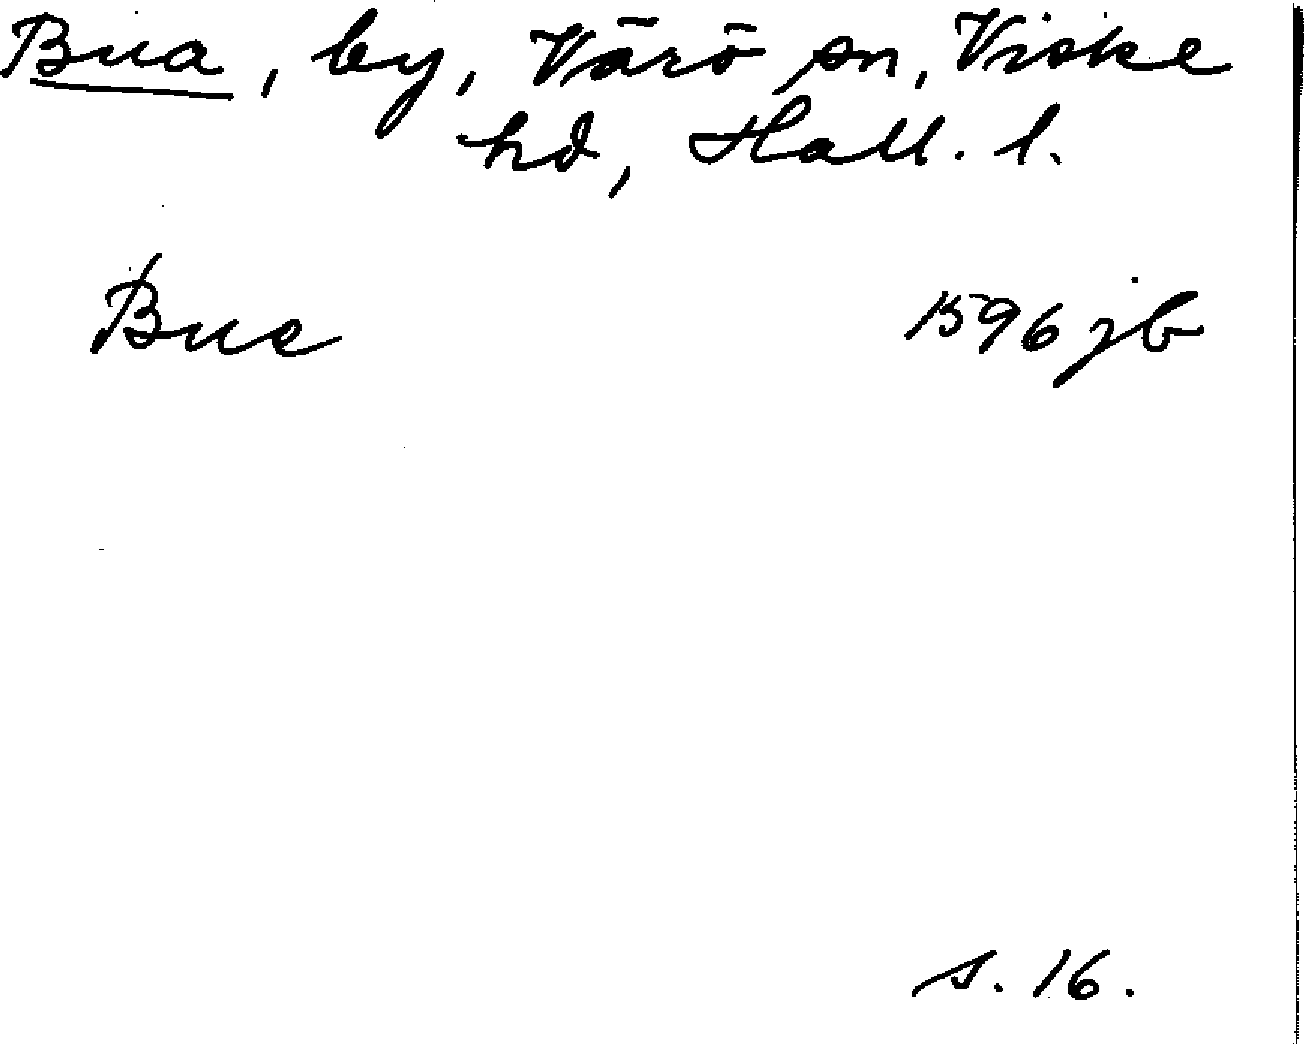 Bua, by, Värö sn, Viske
hd, Hall. l.
Bue 1596 jb
s. 16.